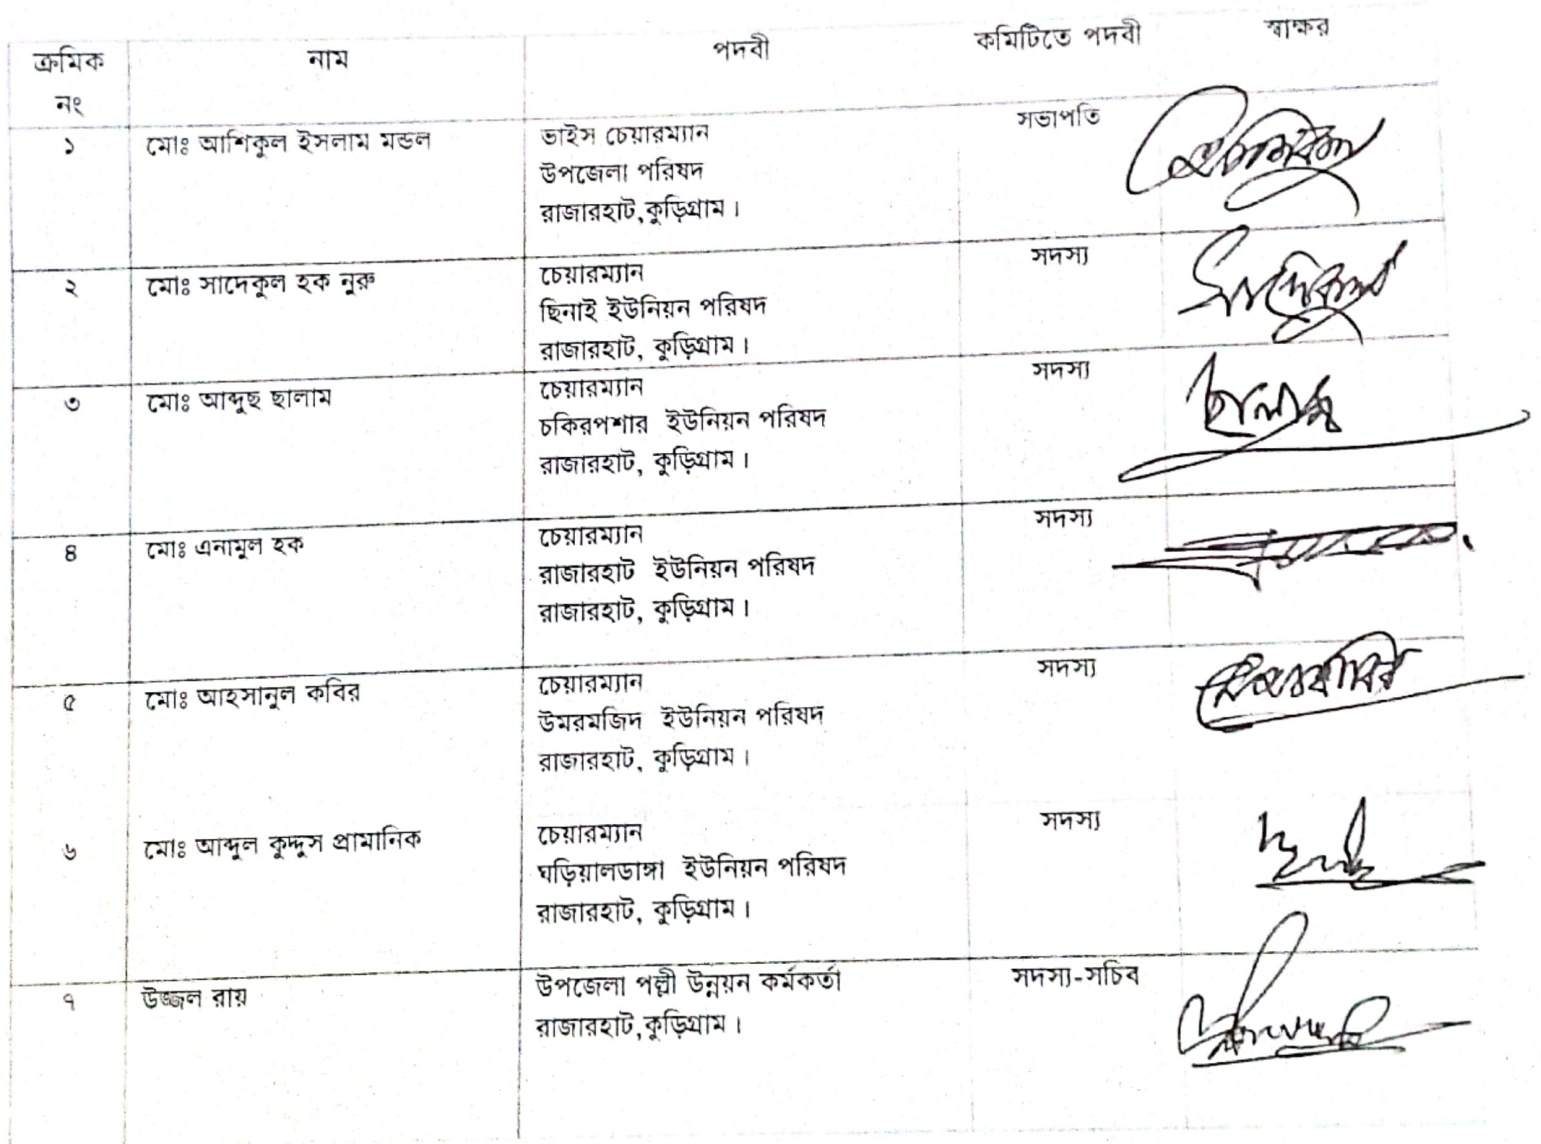 ক্রমিক নং নাম পদবী কমিটিতে পদবী স্বাক্ষর
১ মোঃ আশিকুল ইসলাম মন্ডল ভাইস চেয়ারম্যান সভাপতি
উপজেলা পরিষদ
রাজারহাট,কুড়িগ্রাম।
২ মোঃ সাদেকুল হক নুরু চেয়ারম্যান সদস্য
ছিনাই ইউনিয়ন পরিষদ
রাজারহাট, কুড়িগ্রাম।
৩ মোঃ আব্দুছ ছালাম চেয়ারম্যান সদস্য ছালাম
চকিরপশার ইউনিয়ন পরিষদ
রাজারহাট, কুড়িগ্রাম।
৪ মোঃ এনামুল হক চেয়ারম্যান সদস্য
রাজারহাট ইউনিয়ন পরিষদ
রাজারহাট, কুড়িগ্রাম।
৫ মোঃ আহসানুল কবির চেয়ারম্যান সদস্য
উমরমজিদ ইউনিয়ন পরিষদ
রাজারহাট, কুড়িগ্রাম।
৬ মোঃ আব্দুল কুদ্দুস প্রামানিক চেয়ারম্যান সদস্য
ঘড়িয়ালডাঙ্গা ইউনিয়ন পরিষদ
রাজারহাট, কুড়িগ্রাম।
৭ উজ্জল রায় উপজেলা পল্লী উন্নয়ন কর্মকর্তা সদস্য-সচিব
রাজারহাট,কুড়িগ্রাম।